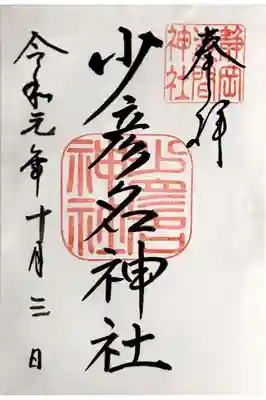 奉拝
静岡
浅間
神社
少彦名神社
令和元年十月三日